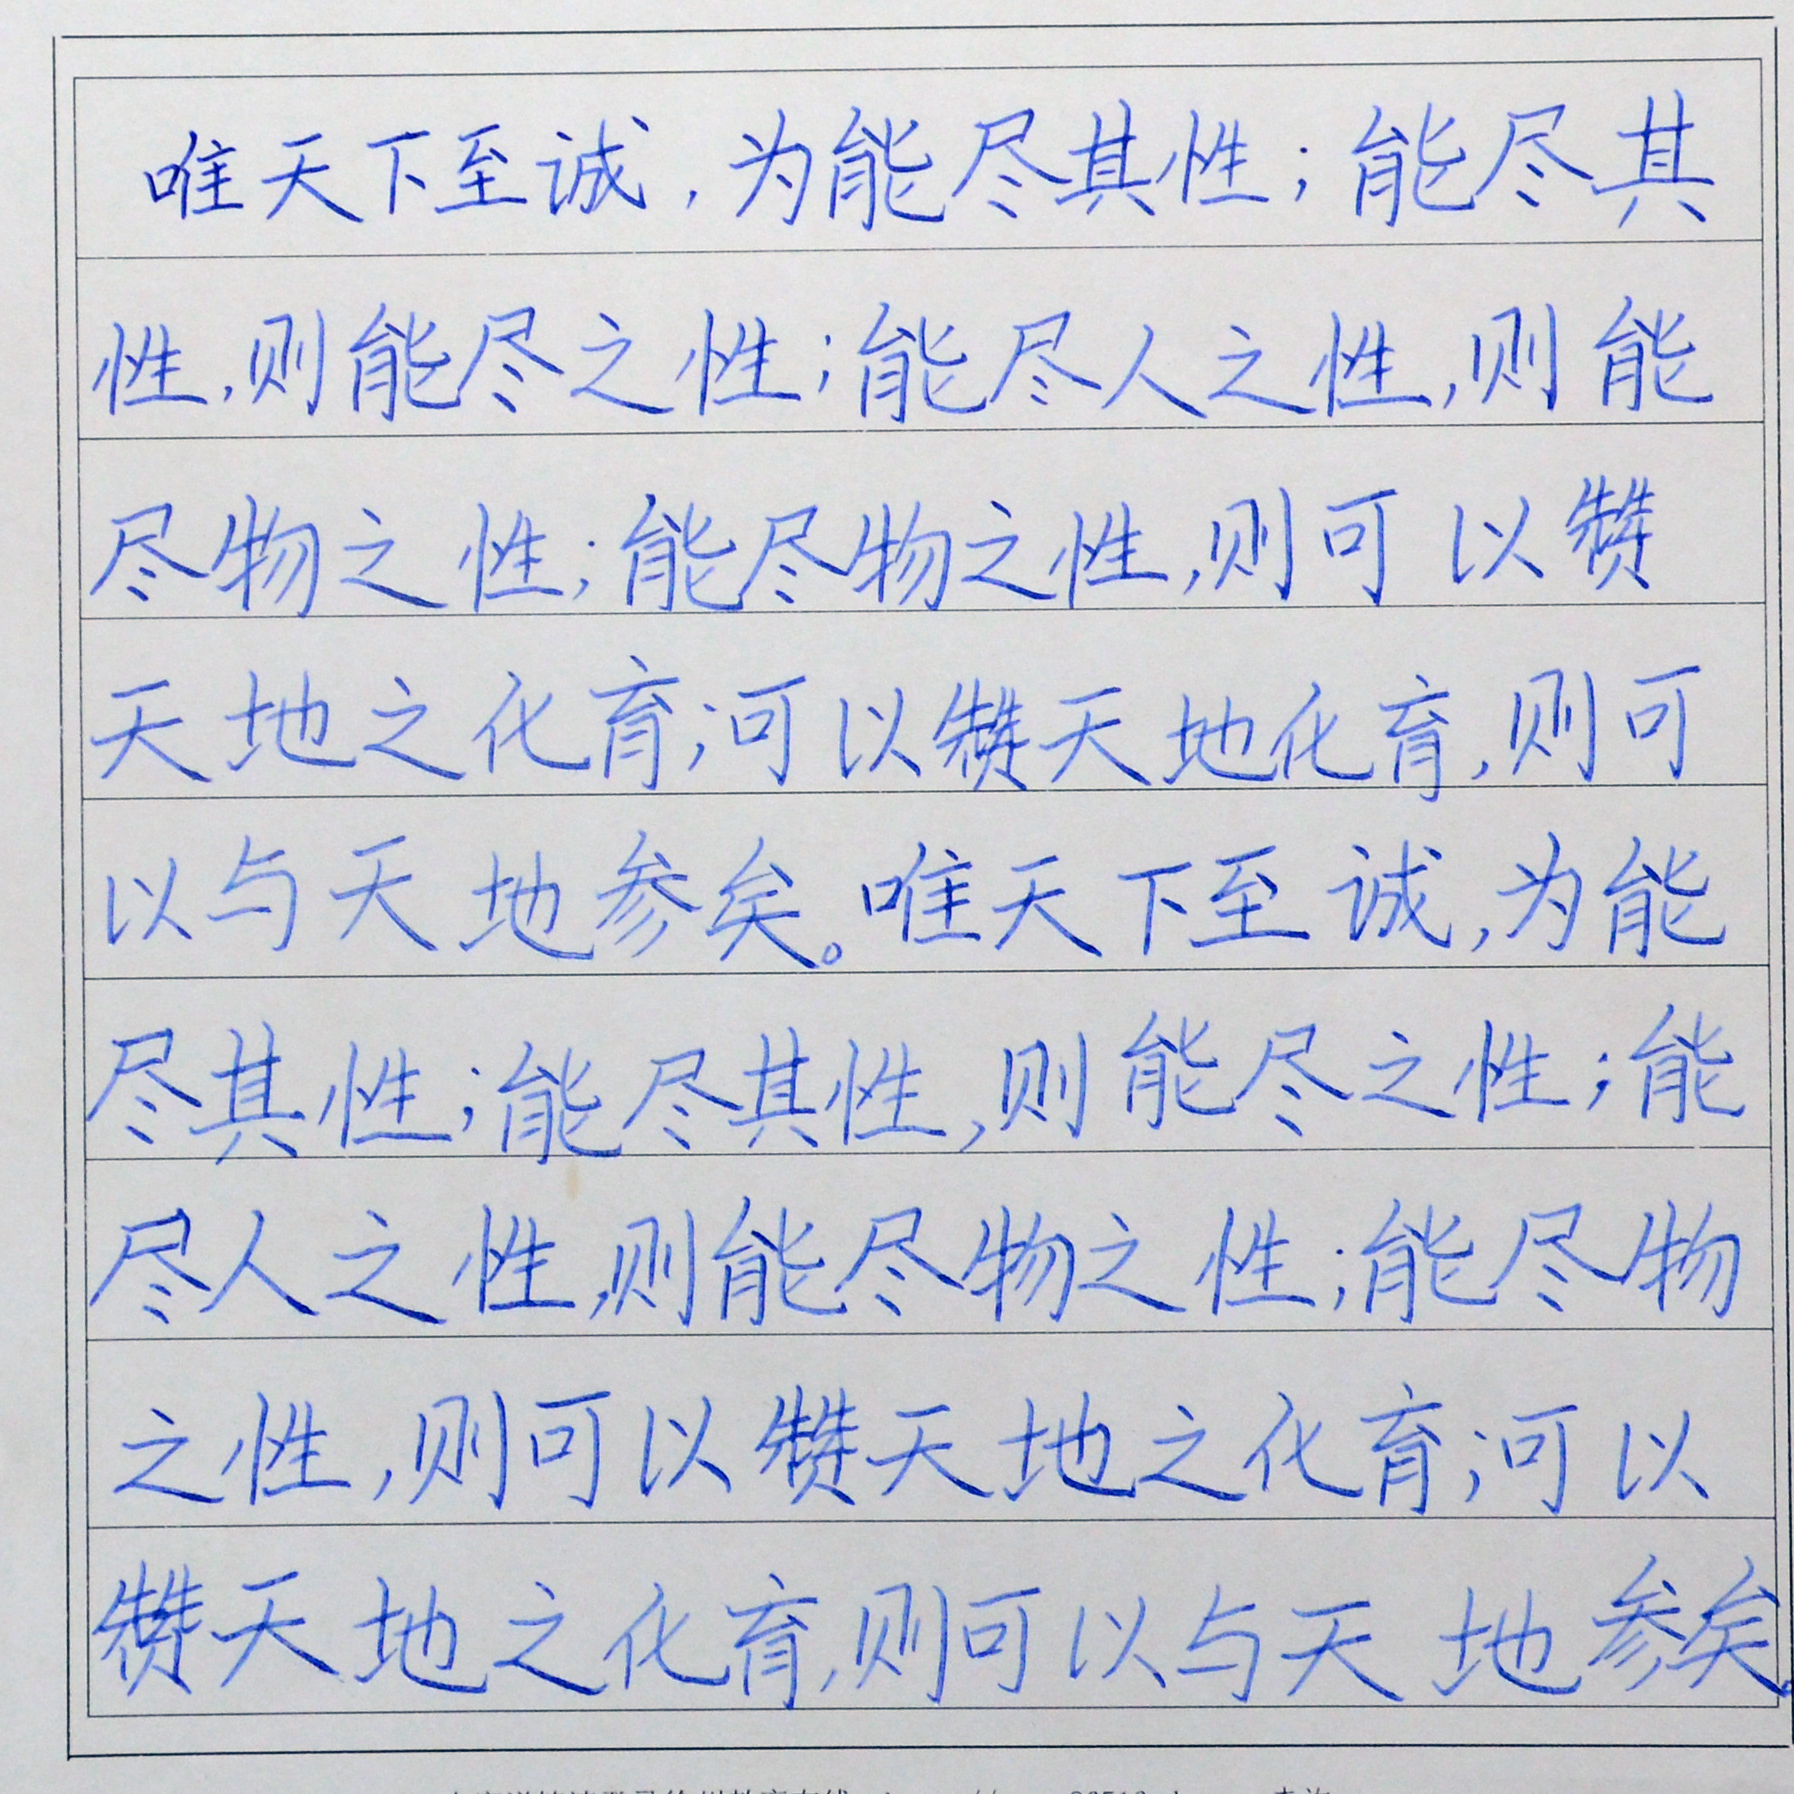 唯天下至诚，为能尽其性；能尽其
性，则能尽之性；能尽人之性，则能
尽物之性；能尽物之性，则可以赞
天地之化育；可以赞天地化育，则可
以与天地参矣。唯天下至诚，为能
尽其性；能尽其性，则能尽之性；能
尽人之性，则能尽物之性；能尽物
之性，则可以赞天地之化育；可以
赞天地之化育，则可以与天地参矣。